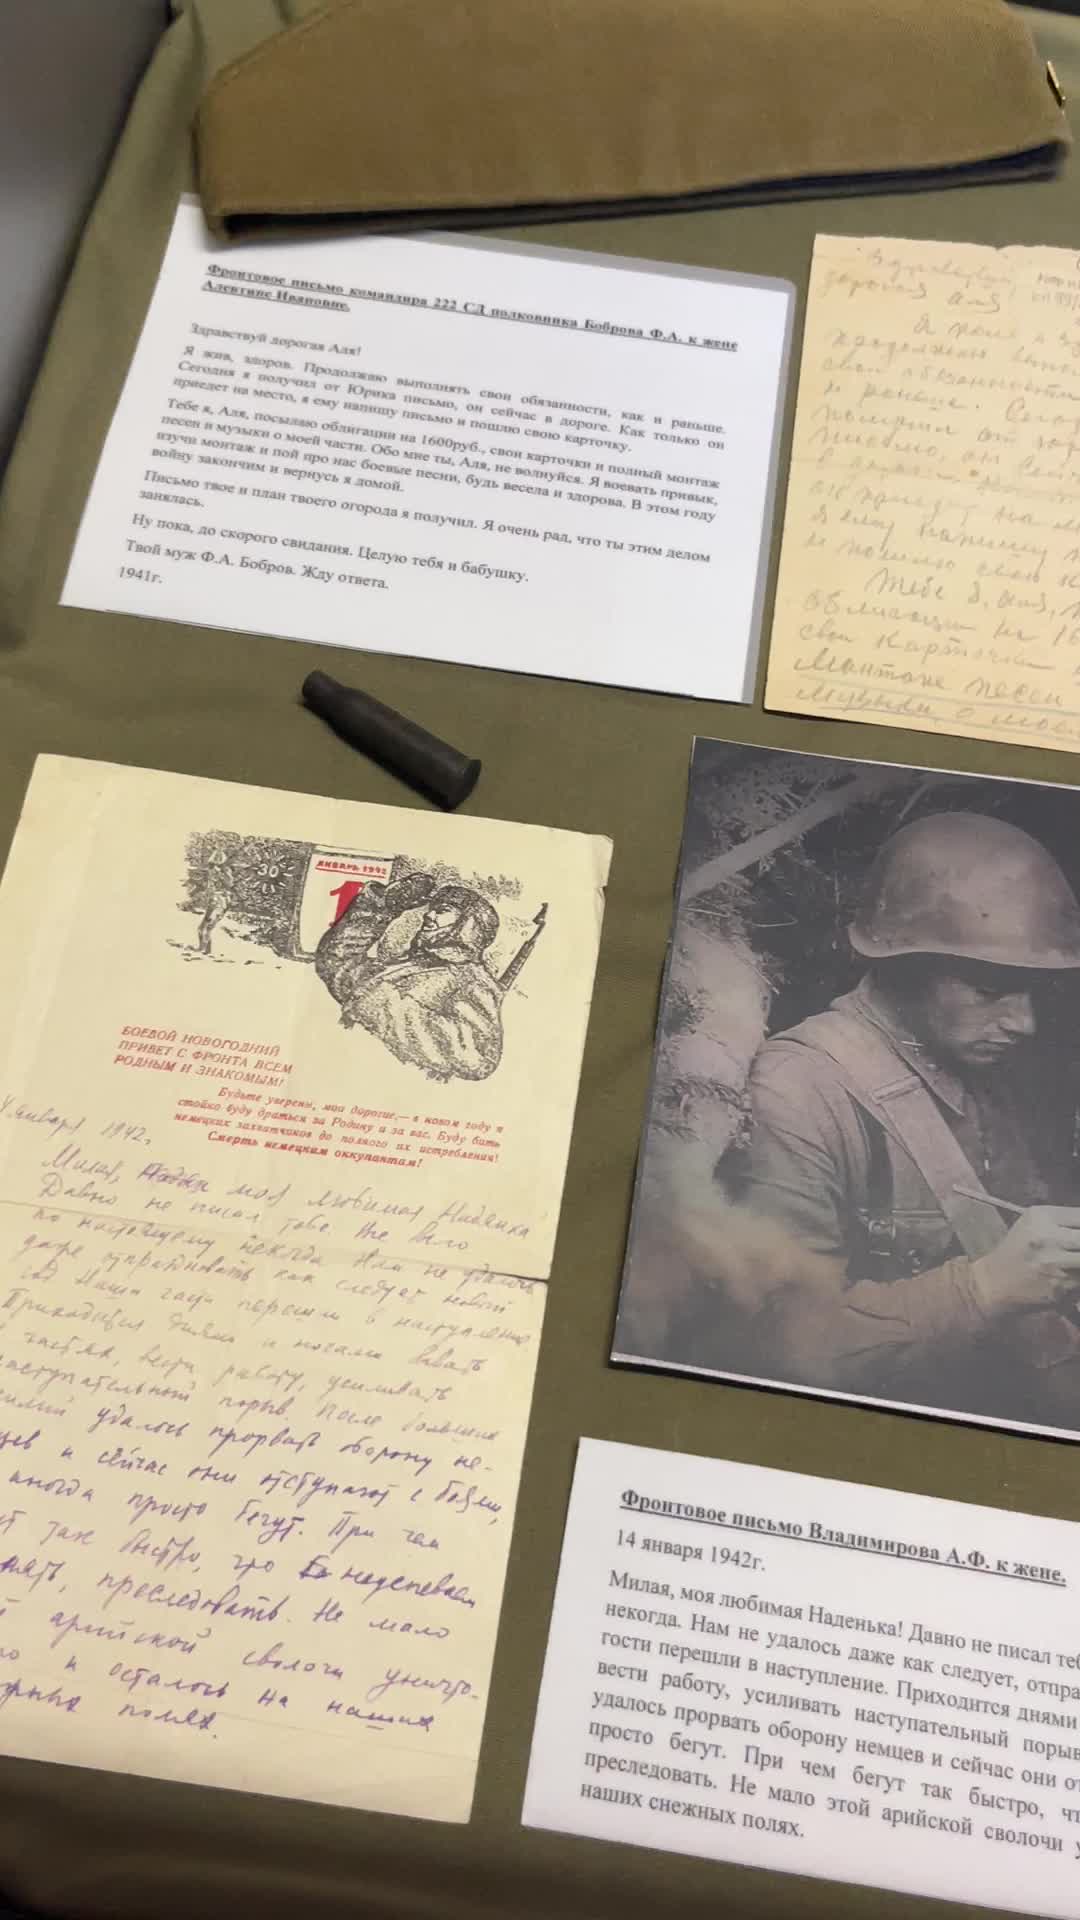 Фронтовое письмо командира 222 СД полковника Боброва Ф.А. к жене
Алевтине Ивановне.
Здравствуй дорогая Аля!
Я жив, здоров. Продолжаю выполнять свои обязанности, как и раньше.
Сегодня я получил от Юрика письмо, он сейчас в дороге. Как только он
приедет на место, я ему напишу письмо и пошлю свою карточку.
Тебе я, Аля, посылаю облигации на 1600руб., свои карточки и полный монтаж
песен и музыки о моей части. Обо мне ты, Аля, не волнуйся. Я воевать привык,
изучи монтаж и пой про нас боевые песни, будь весела и здорова. В этом году
войну закончим и вернусь я домой.
Письмо твое и план твоего огорода я получил. Я очень рад, что ты этим делом
занялась.
Ну пока, до скорого свидания. Целую тебя и бабушку.
Твой муж Ф.А. Бобров. Жду ответа.
1941г.
дорогая Аля
Я жив и
продолжаю
свои обязанности
и раньше. Сегод
получил от Юр
письмо, он сейч
в дороге
приедет на м
я ему напишу
и пошлю свою к
Тебе я, Аля,
облигации на 16
свои карточки
Монтаж песен
музыки о мое
30
ЯНВАРЬ 1942
1
БОЕВОЙ НОВОГОДНИЙ
ПРИВЕТ С ФРОНТА ВСЕМ
РОДНЫМ И ЗНАКОМЫМ!
Будьте уверены, мои дорогие,— в новом году я
стойко буду драться за Родину и за вас. Буду бить
немецких захватчиков до полного их истребления!
Смерть немецким оккупантам!
января 1942г
Милая, моя любимая Наденька!
Давно не писал тебе. Все было
по настоящему некогда Нам не удалось
даже отпраздновать как следует новый
год Наши части перешли в наступление
Приходится днями и ночами бывать
частях, вести работу, усиливать
наступательный порыв. После больших
удалось прорвать оборону не-
цев и сейчас они отступают с боями,
иногда просто бегут. При чем
так быстро, что не успеваем
преследовать. Не мало
арийской сволочи уничто-
и осталось на наших
полях.
Фронтовое письмо Владимирова А.Ф. к жене.
14 января 1942г.
Милая, моя любимая Наденька! Давно не писал теб
некогда. Нам не удалось даже как следует, отпра
гости перешли в наступление. Приходится днями
вести работу, усиливать наступательный порыв
удалось прорвать оборону немцев и сейчас они от
просто бегут. При чем бегут так быстро, чт
преследовать. Не мало этой арийской сволочи у
наших снежных полях.